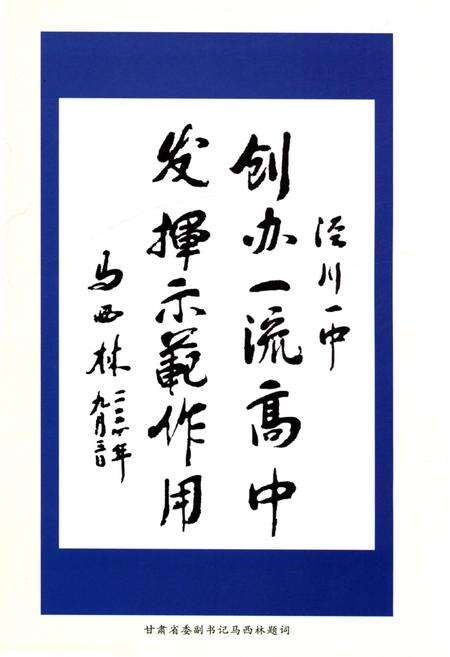 泾川一中
创办一流高中
发揮示範作用
马西林
九月三日
甘肃省委副书记马西林题词